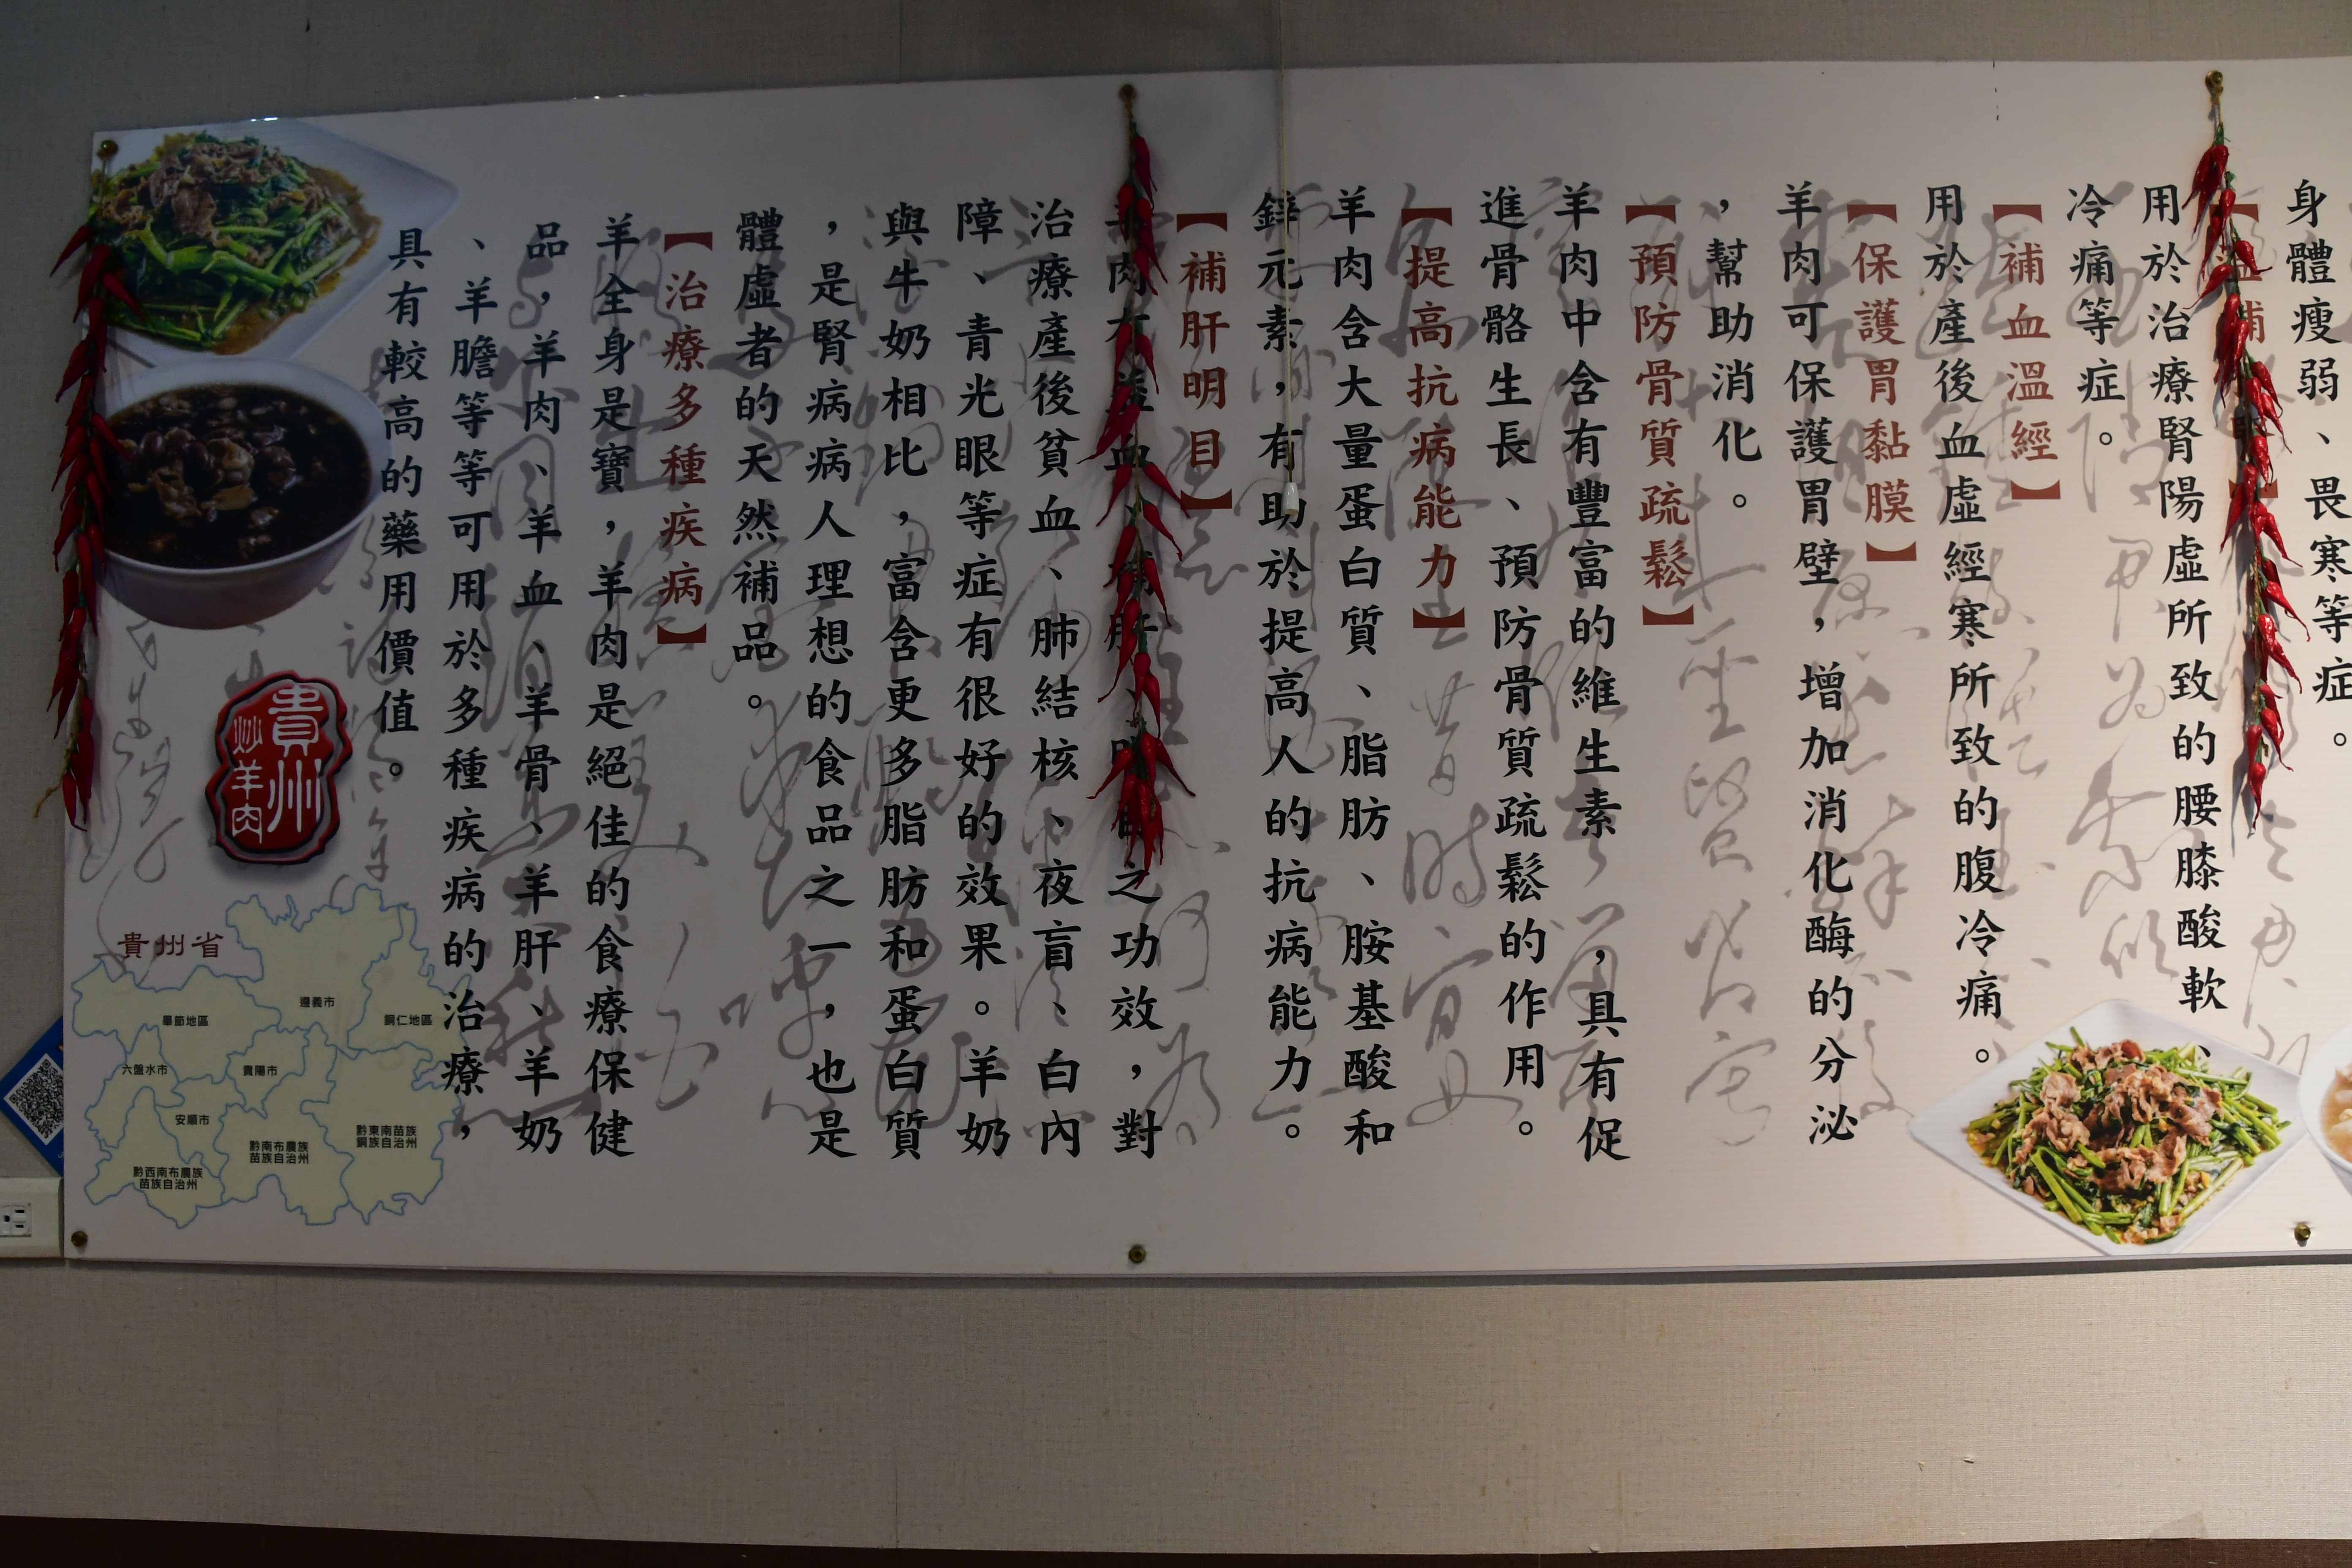 身體瘦弱、畏寒等症。
補
用於治療腎陽虛所致的腰膝酸軟、
冷痛等症。
【補血溫經】
用於產後血虛經寒所致的腹冷痛。
【保護胃黏膜】
羊肉可保護胃壁，增加消化酶的分泌
，幫助消化。
【預防骨質疏鬆】
羊肉中含有豐富的維生素，具有促
進骨骼生長、預防骨質疏鬆的作用。
【提高抗病能力】
羊肉含大量蛋白質、脂肪、胺基酸和
鋅元素，有助於提高人的抗病能力。
【補肝明目】
肉 血、 肝 之功效，對
治療產後貧血、肺結核、夜盲、白內
障、青光眼等症有很好的效果。羊奶
與牛奶相比，富含更多脂肪和蛋白質
，是腎病病人理想的食品之一，也是
體虛者的天然補品。
【治療多種疾病】
羊全身是寶，羊肉是絕佳的食療保健
品，羊肉、羊血、羊骨、羊肝、羊奶
、羊膽等等可用於多種疾病的治療，
具有較高的藥用價值。
貴州
炒羊肉
貴州省
遵義市
銅仁地區
畢節地區
六盤水市
貴陽市
安順市
黔東南苗族
銅族自治州
黔南布農族
苗族自治州
黔西南布農族
苗族自治州